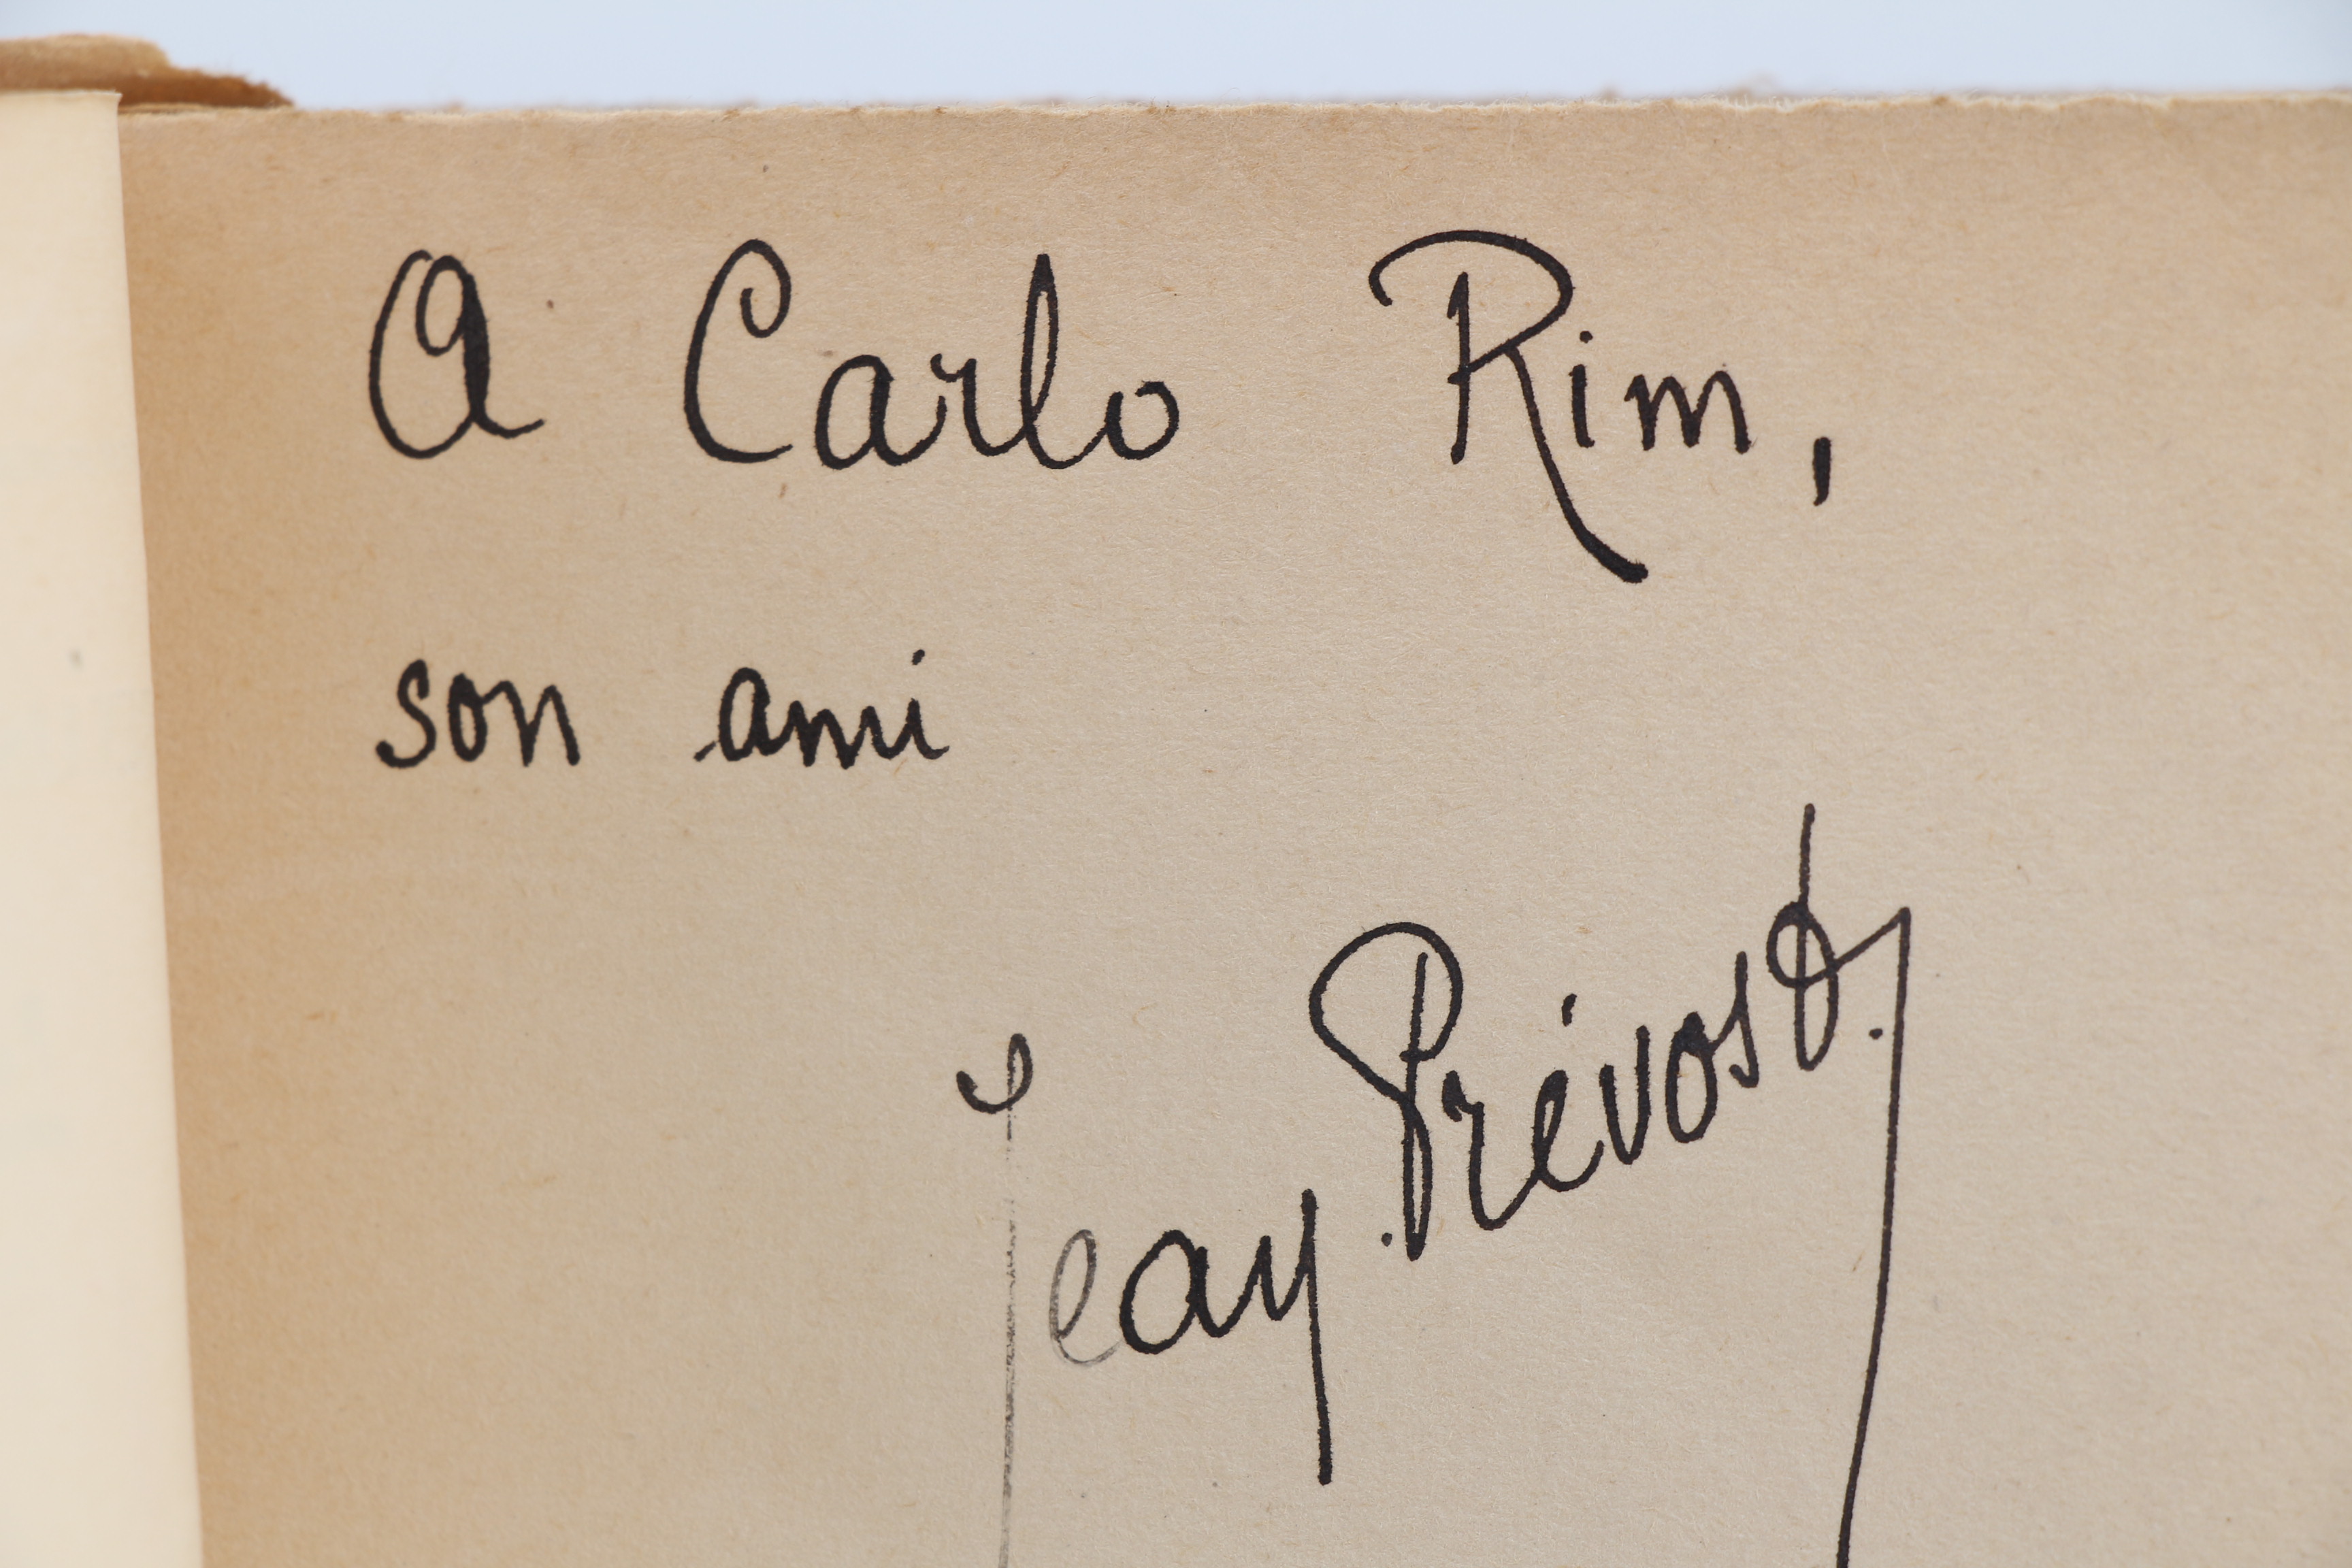 A Carlo Rim,
son ami
Jean Prévost